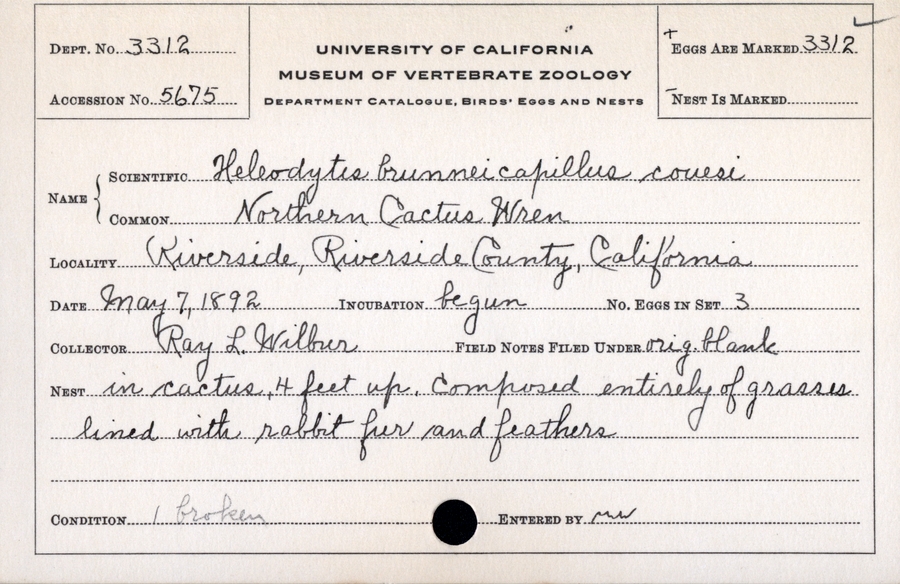 Dept. No. 3312
Accession No. 5675
UNIVERSITY OF CALIFORNIA
MUSEUM OF VERTEBRATE ZOOLOGY
Department Catalogue, Birds' Eggs and Nests
+ Eggs Are Marked 3312
- Nest Is Marked
Name { Scientific Heleodytes brunneicapillus couesi
Common Northern Cactus Wren
Locality Riverside, Riverside County, California
Date May 7, 1892 Incubation begun No. Eggs in Set 3
Collector Ray L. Wilbur Field Notes Filed Under orig. blank
Nest in cactus, 4 feet up. Composed entirely of grasses
lined with rabbit fur and feathers
Condition 1 broken Entered by